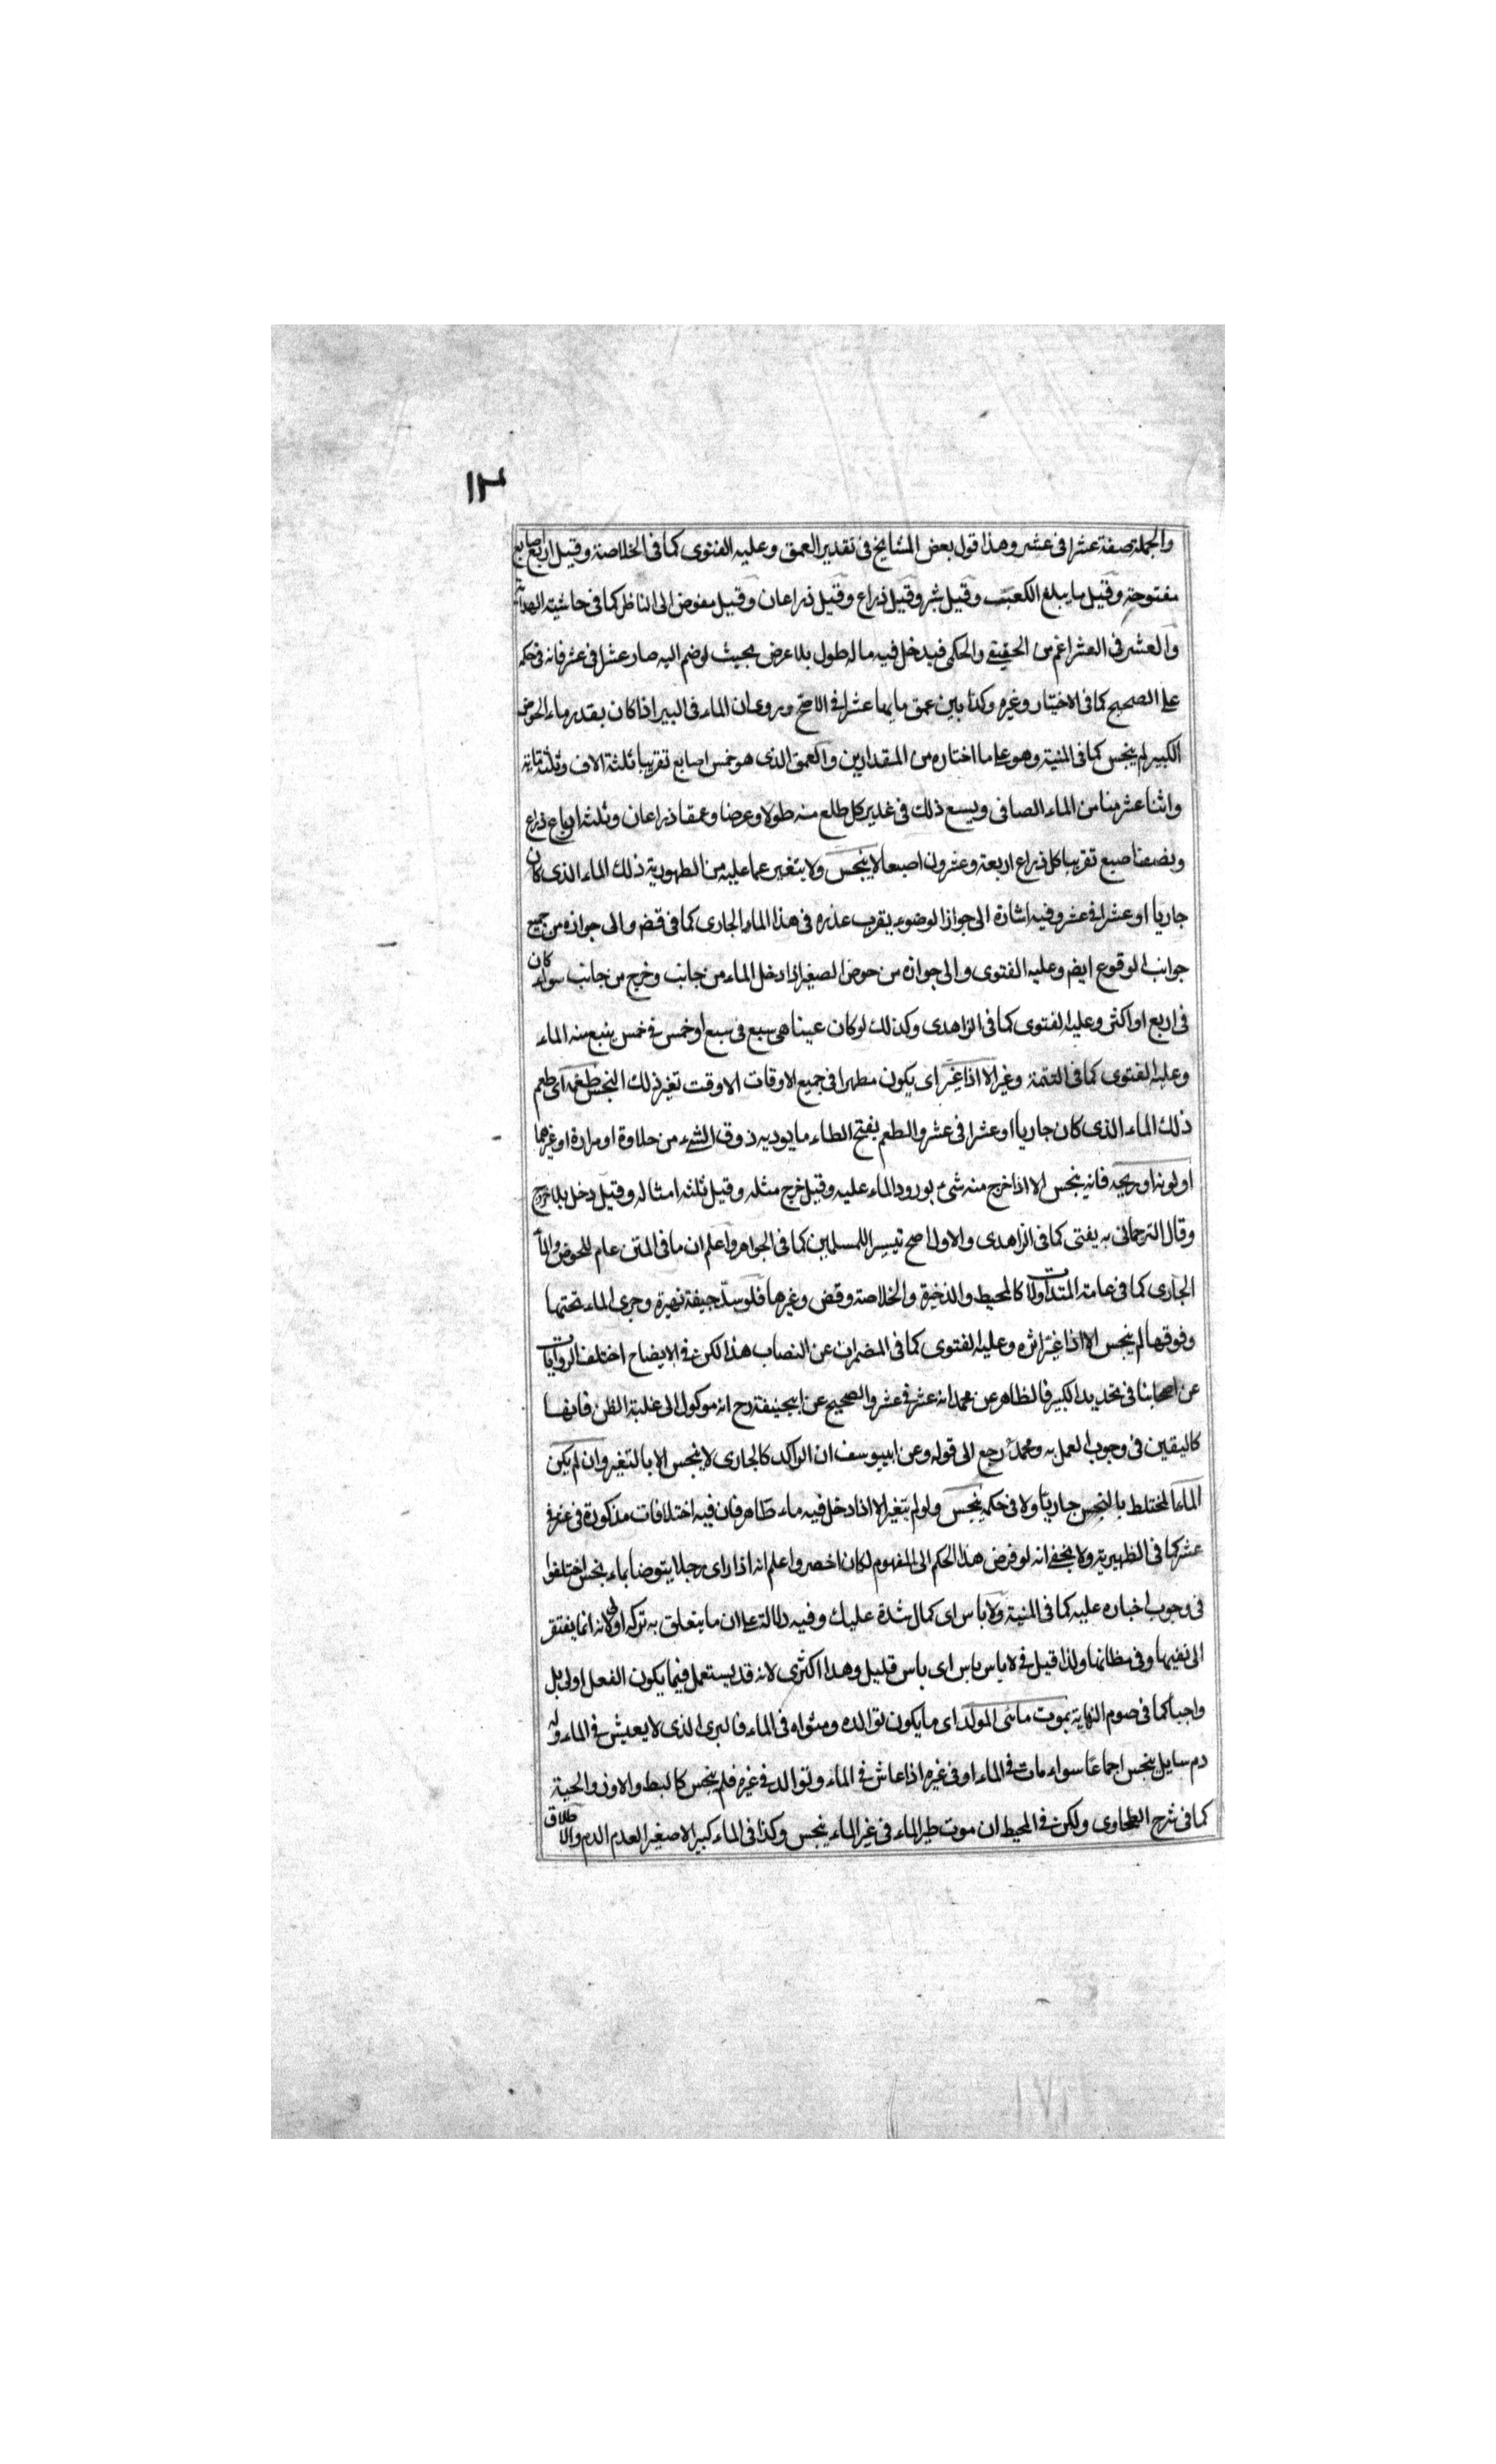 ١٣
والجملة صفة عشرا فى عشر وهذا قول بعض المشايخ فى تقدير العمق وعليه الفتوى كما فى الخلاصة وقيل اربع اصابع
مفتوحة وقيل ما يبلغ الكعب وقيل شبر وقيل ذراع وقيل ذراعان وقيل مفوض الى الناظر كما فى حاشية الهداية
والعشر فى العشر اعم من الحقيقى والحكمى فيدخل فيه ما له طول بلا عرض بحيث لو ضم اليه صار عشرا فى عشر فانه فى حكمه
على الصحيح كما فى الاختيار وغيره وكذا بير عمق مايها عشرا فى الاصح وروى ان الماء فى البير اذا كان بقدر ماء الحوض
الكبير لم ينجس كما فى المنية وهو على ما اختاره من المقدارين والعمق الذى هو خمس اصابع تقريبا ثلثة الاف وثلثمائة
واثنا عشر منا من الماء الصافى ويسع ذلك فى غدير كل طلع منه طولا وعرضا وعمقا ذراعان وثلثة ارباع ذراع
ونصف اصبع تقريبا كل ذراع اربعة وعشرون اصبعا لا ينجس ولا يتغير عما عليه من الطهورية ذلك الماء الذى كان
جاريا او عشرا فى عشر وفيه اشارة الى جواز الوضوء بقرب عذره فى هذا الماء الجارى كما فى قض والى جوازه من جميع
جوانب الوقوع ايضا وعليه الفتوى والى جوازه من حوض الصغير اذا دخل الماء من جانب وخرج من جانب سواء كان
فى اربع او اكثر وعليه الفتوى كما فى الزاهدى وكذلك لو كان عينا هى سبع فى سبع او خمس فى خمس ينبع منه الماء
وعليه الفتوى كما فى التتمة وغيره الا اذا غير اى يكون مطهرا فى جميع الاوقات الا وقت تغير ذلك النجس طعمه اى طعم
ذلك الماء الذى كان جاريا او عشرا فى عشر والطعم بفتح الطاء ما يوديه ذوق الشئ من حلاوة او مرارة او غيرهما
او لونه او ريحه فانه ينجس الا اذا خرج منه شئ بورود الماء عليه وقيل خرج مثله وقيل ثلثة امثاله وقيل دخل بلا خروج
وقال الترجمانى به يفتى كما فى الزاهدى والاول اصح تيسيرا للمسلمين كما فى الجواهر واعلم ان ما فى المتن عام للحوض والماء
الجارى كما فى عامة المتداولات كالمحيط والذخيرة والخلاصة وقض وغيرها فلو سد جيفة نهره وجرى الماء تحتها
وفوقها لم ينجس الا اذا غير اثره وعليه الفتوى كما فى المضمرات عن النصاب هذا لكن فى الايضاح اختلف الروايات
عن اصحابنا فى تحديد الكبير فالظاهر عن محمد انه عشر فى عشر والصحيح عن ابيحنيفة رح انه موكول الى غلبة الظن فانها
كاليقين فى وجوب العمل به ومحمد رجع الى قوله وعن ابييوسف ان الراكد كالجارى لا ينجس الا بالتغير وان لم يكن
الماء المختلط بالنجس جاريا ولا فى حكمه ينجس ولو لم يتغير الا اذا دخل فيه ماء طاهر فان فيه اختلافات مذكورة فى عشر فى
عشر كما فى الظهيرية ولا يخفى انه لو فوض هذا الحكم الى المفهوم لكان اخصر واعلم انه اذا راى رجلا يتوضا بماء نجس اختلفوا
فى وجوب اخباره عليه كما فى المنية ولا باس اى كمال شدة عليك وفيه دلالة على ان ما يتعلق به تركه اولى لانه انما يفتقر
الى نفيها وفى مظانها ولذا قيل فى لا باس باس اى باس قليل وهذا اكثرى لانه قد يستعمل فيما يكون الفعل اولى بل
واجبا كما فى صوم النهاية بموت مائى المولد اى ما يكون توالده ومثواه فى الماء فالبرى الذى لا يعيش فى الماء وله
دم سايل ينجس اجماعا سواء مات فى الماء او فى غيره اذا عاش فى الماء وتوالد فى غيره فلم ينجس كالبط والاوز والحية
كما فى شرح الطحاوى ولكن فى المحيط ان موت طير الماء فى غير الماء ينجس وكذا فى الماء كبيرا لا صغيرا لعدم الدم والاطلاق